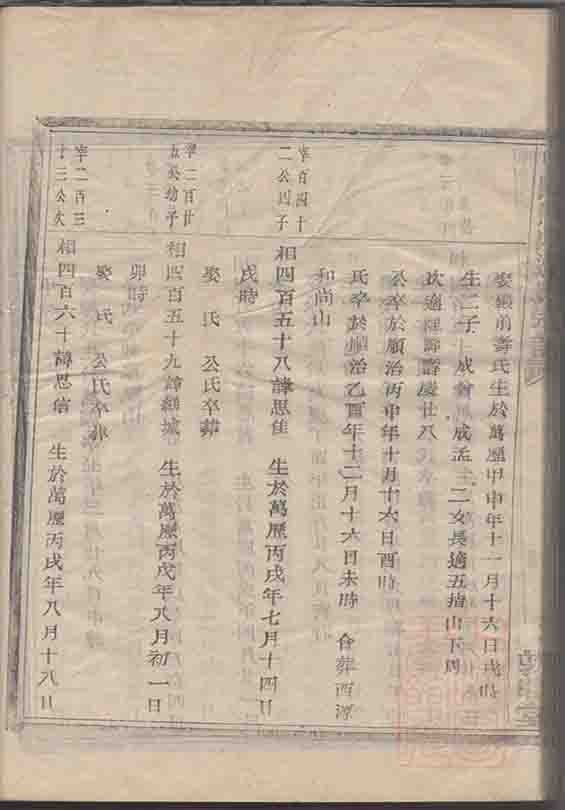 娶墺前壽氏生於萬歷甲申年十一月十六日戌時
生二子 成會 成孟 二女長適五指山下周
次適
公卒於順治丙申年十月十六日酉時
氏卒於順治乙酉年十二月十六日未時 合葬西源
和尚山
宰百四十
二公四子
相四百五十八諱思隹 生於萬歷丙戌年七月十四日
戌時
娶 氏 公氏卒葬
宰二百廿
五公幼子
相四百五十九諱 生於萬歷丙戌年八月初一日
卯時
娶 氏 公氏卒葬
宰二百三
十三公次
相四百六十諱思信 生於萬歷丙戌年八月十八日